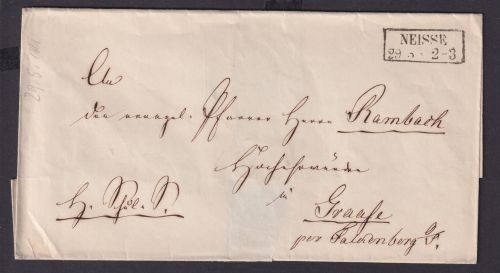 NEISSE
29 5 2-3
An
den evangel. Pfarrer Herrn Rambach
Hochehrwürden
in
H. Schul. S. Graase
per Falkenberg O/S.
29/5.